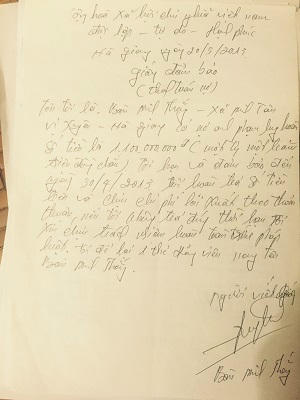 Cộng hoà Xã hội chủ nghĩa việt nam
độc lập - tự do - Hạnh phúc
Hà giang ngày 20/3/2013
giấy đảm bảo
Tên tôi là. Bàn Minh Thắng - Xã minh Tân
vị Xuyên - Hà giang có nợ anh phạm huy
số tiền là 1.100.000.000đ (một tỷ một trăm
triệu đồng chẵn) Tôi hẹn và đảm bảo đến
ngày 30/4/2013 tôi hoàn trả số tiền
trên và chịu chi phí lãi xuất theo thoả
thuận nếu tôi không trả đúng thời hạn tôi
Xin chịu trách nhiệm hoàn toàn trước pháp
luật. tôi để lại thẻ đảng viên mang tên
Bàn Minh Thắng.
người viết
Bàn Minh Thắng